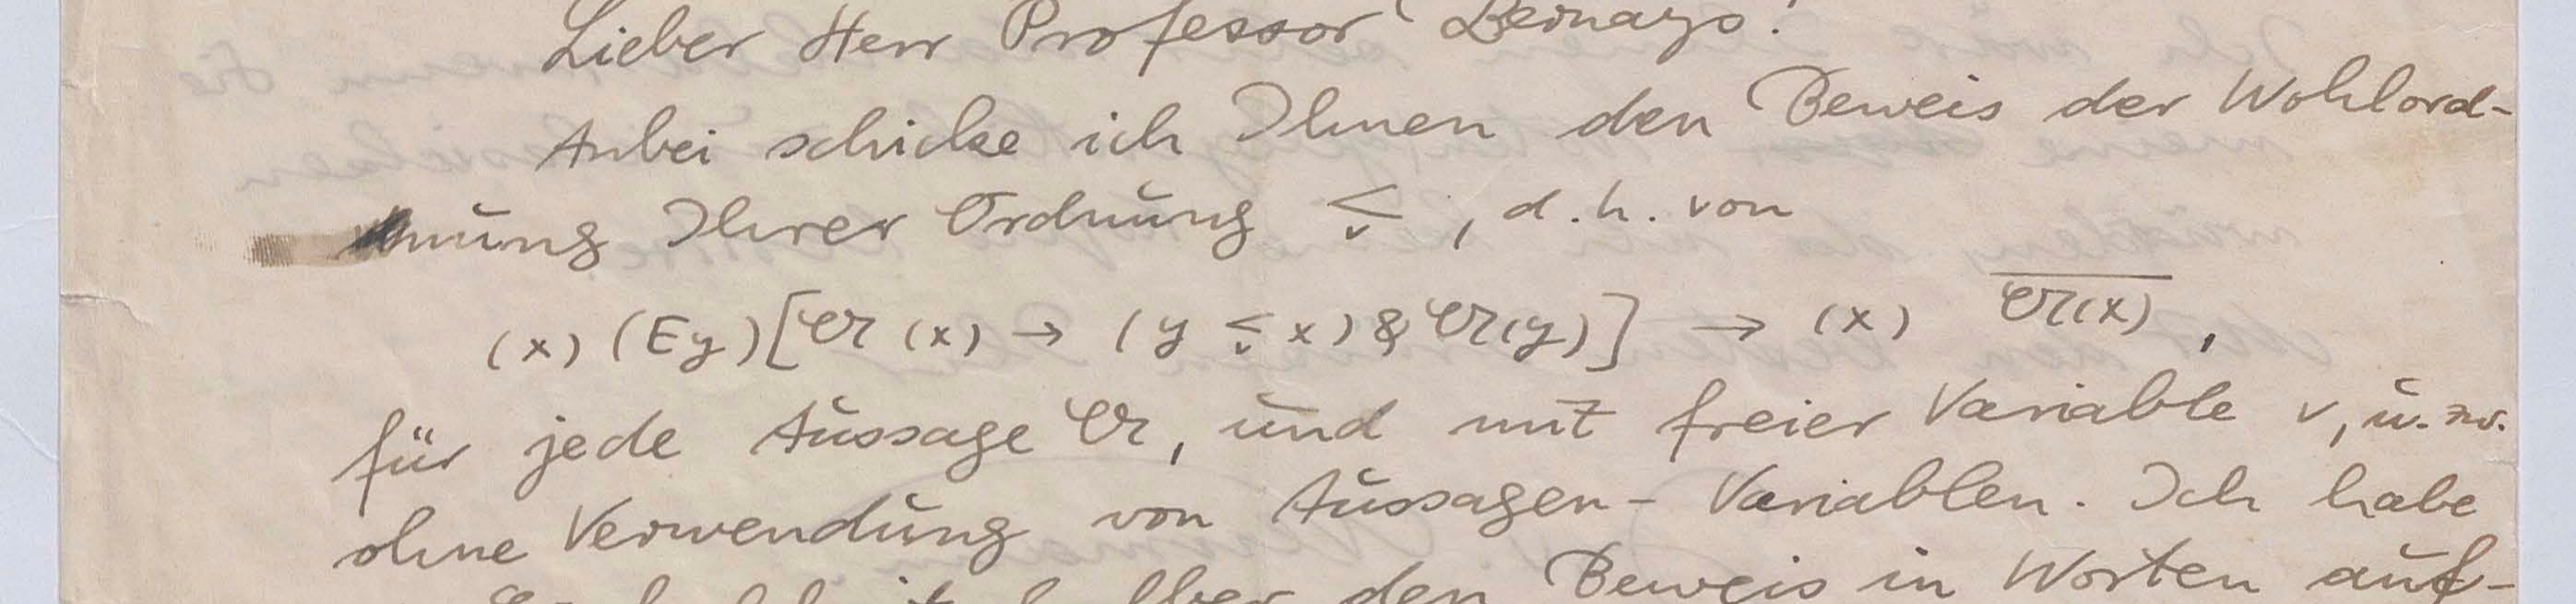 Lieber Herr Professor Bernays!
Anbei schicke ich Ihnen den Beweis der Wohlord-
nung Ihrer Ordnung <ᵥ , d. h. von
(x) (Ey) [𝔄 (x) → (y <ᵥ x) & 𝔄(y)] → (x) \overline{𝔄(x)} ,
für jede Aussage 𝔄, und mit freier Variable v, u. zw.
ohne Verwendung von Aussagen-Variablen. Ich habe
den Beweis in Worten auf-